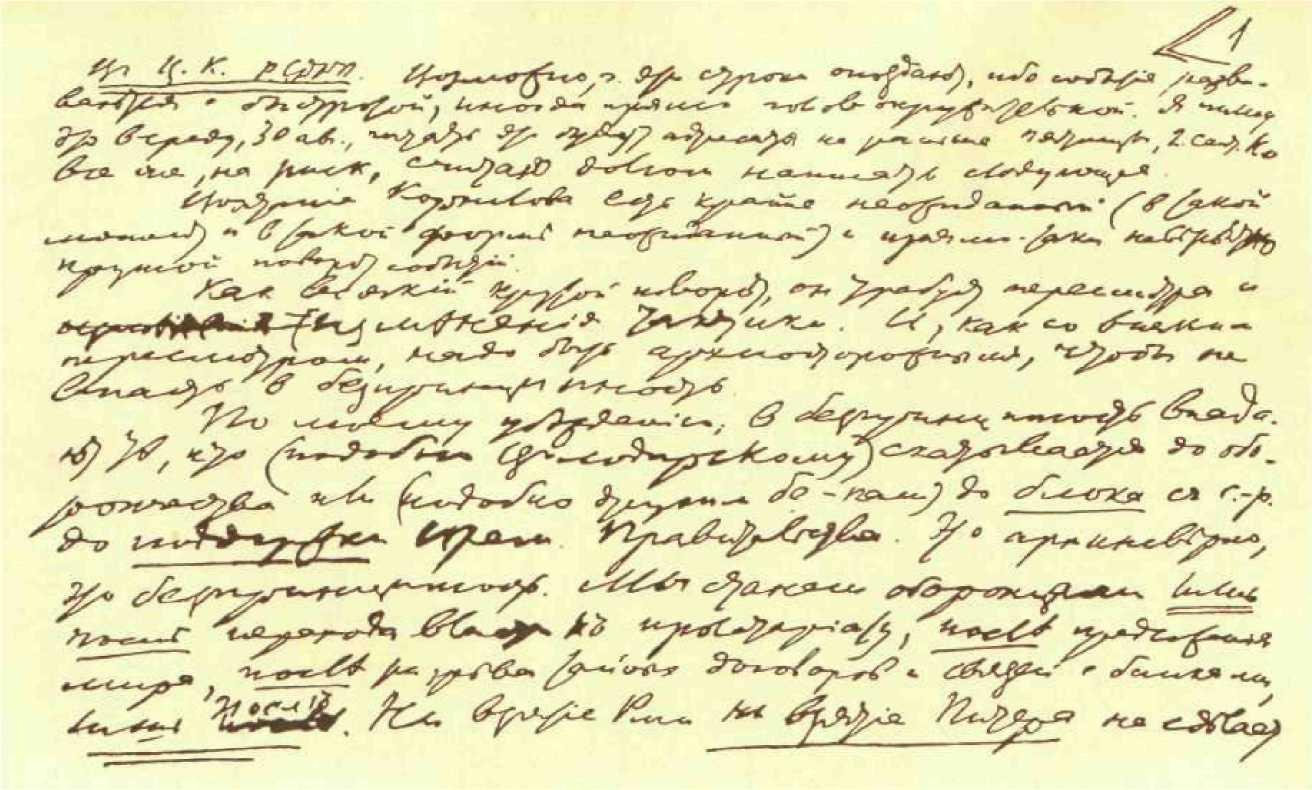 Въ Ц. К. РСДРП. Возможно, ч. эти строки опоздают, ибо событія разви-
ваются с быстротой, иногда прямо головокружительной. Я пишу
это в среду, 30 ав., читать это будут адресаты не раньше пятницы, 2. сент. Но
все же, на риск, считаю долгом написать следующее.
Возстаніе Корнилова есть крайне неожиданный (в такой
момент и в такой формѣ неожиданный) и прямо-таки невѣроятно
крутой поворот событій.
Как всякій крутой поворот, он требует пересмотра и
измѣненія тактики. И, как со всяким
пересмотром, надо быть архиосторожным, чтобы не
впасть в безпринципность.
По моему убѣжденію, в безпринципность впада-
ют тѣ, кто (подобно Володарскому) скатывается до обо-
рончества или (подобно другим бе-кам) до блока съ с.-р.
до поддержки Врем. Правительства. Это архиневѣрно,
это безпринципность. Мы станем оборонцами лишь
послѣ перехода власти къ пролетаріату, послѣ предложенія
мира, послѣ разрыва тайных договоров и связей с банками,
лишь послѣ. Ни взятіе Риги ни взятіе Питера не сдѣлает